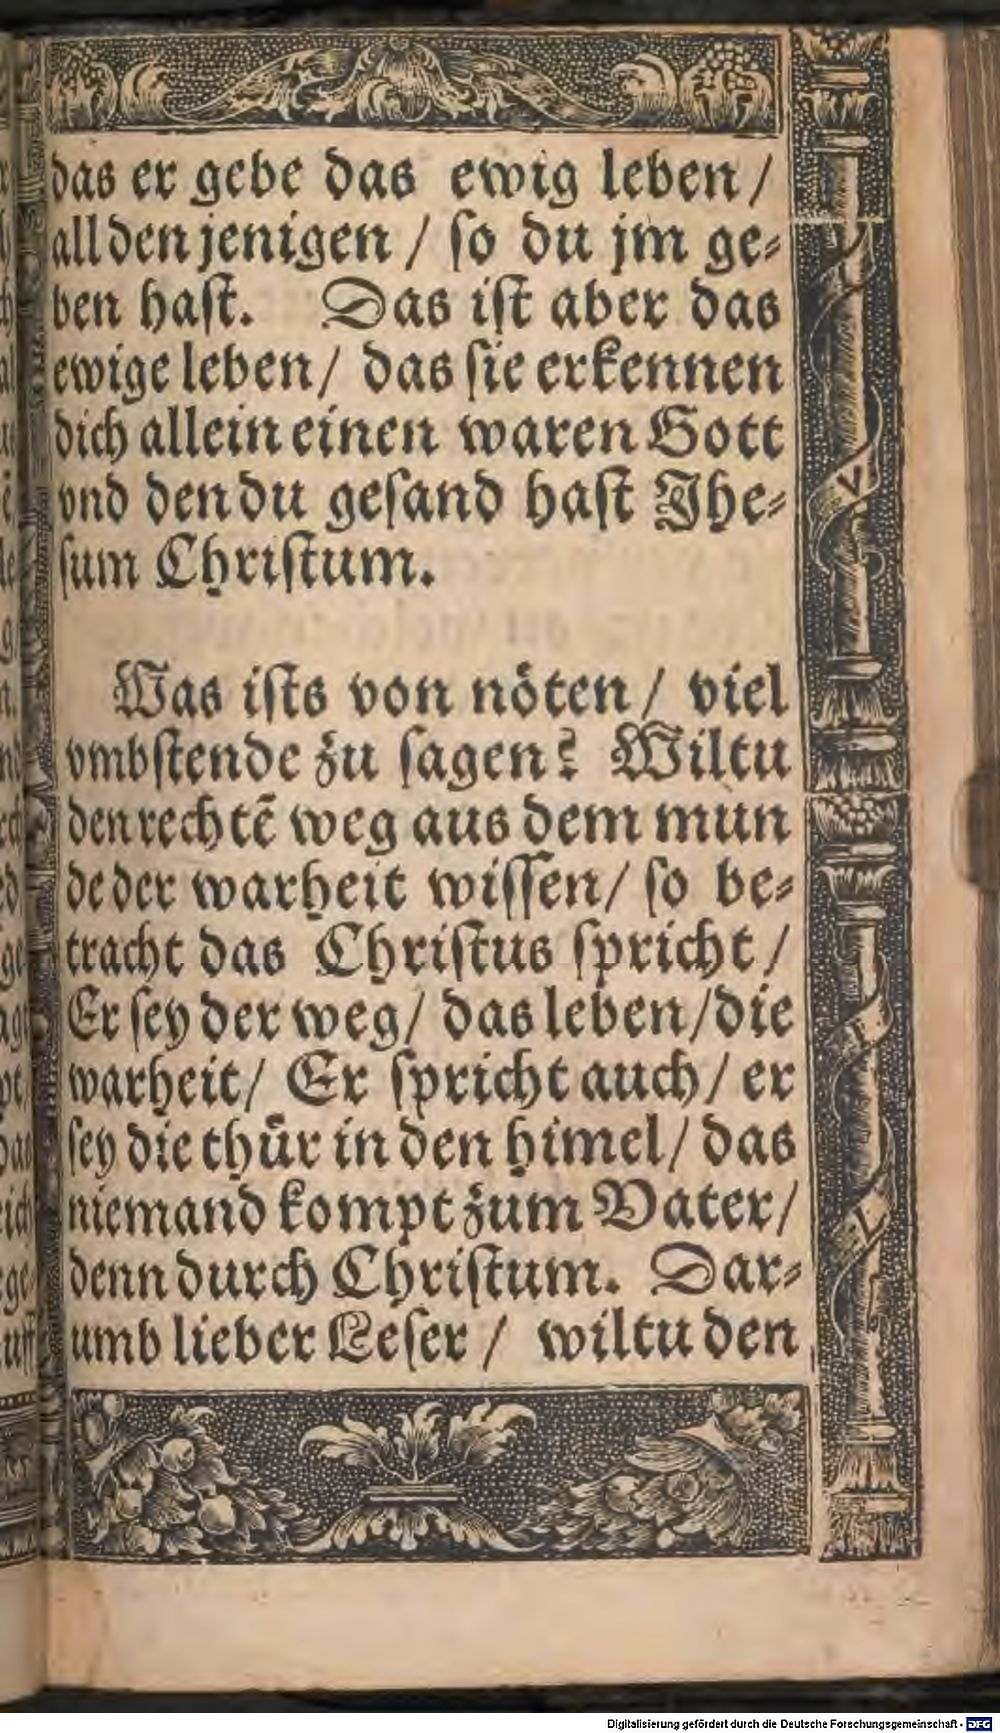 das er gebe das ewig leben /
all den jenigen / ſo du jm ge⸗
ben haſt. Das iſt aber das
ewige leben / das ſie erkennen
dich allein einen waren Gott
vnd den du geſand haſt Jhe⸗
ſum Chriſtum.
Was iſts von nöten / viel
vmbſtende zu ſagen? Wiltu
den rechtē weg aus dem mun
de der warheit wiſſen / ſo be⸗
tracht das Chriſtus ſpricht /
Er ſey der weg / das leben / die
warheit / Er ſpricht auch / er
ſey die thür in den himel / das
niemand kompt zum Vater /
denn durch Chriſtum. Dar⸗
umb lieber Leſer / wiltu den
Digitalisierung gefördert durch die Deutsche Forschungsgemeinschaft - DFG